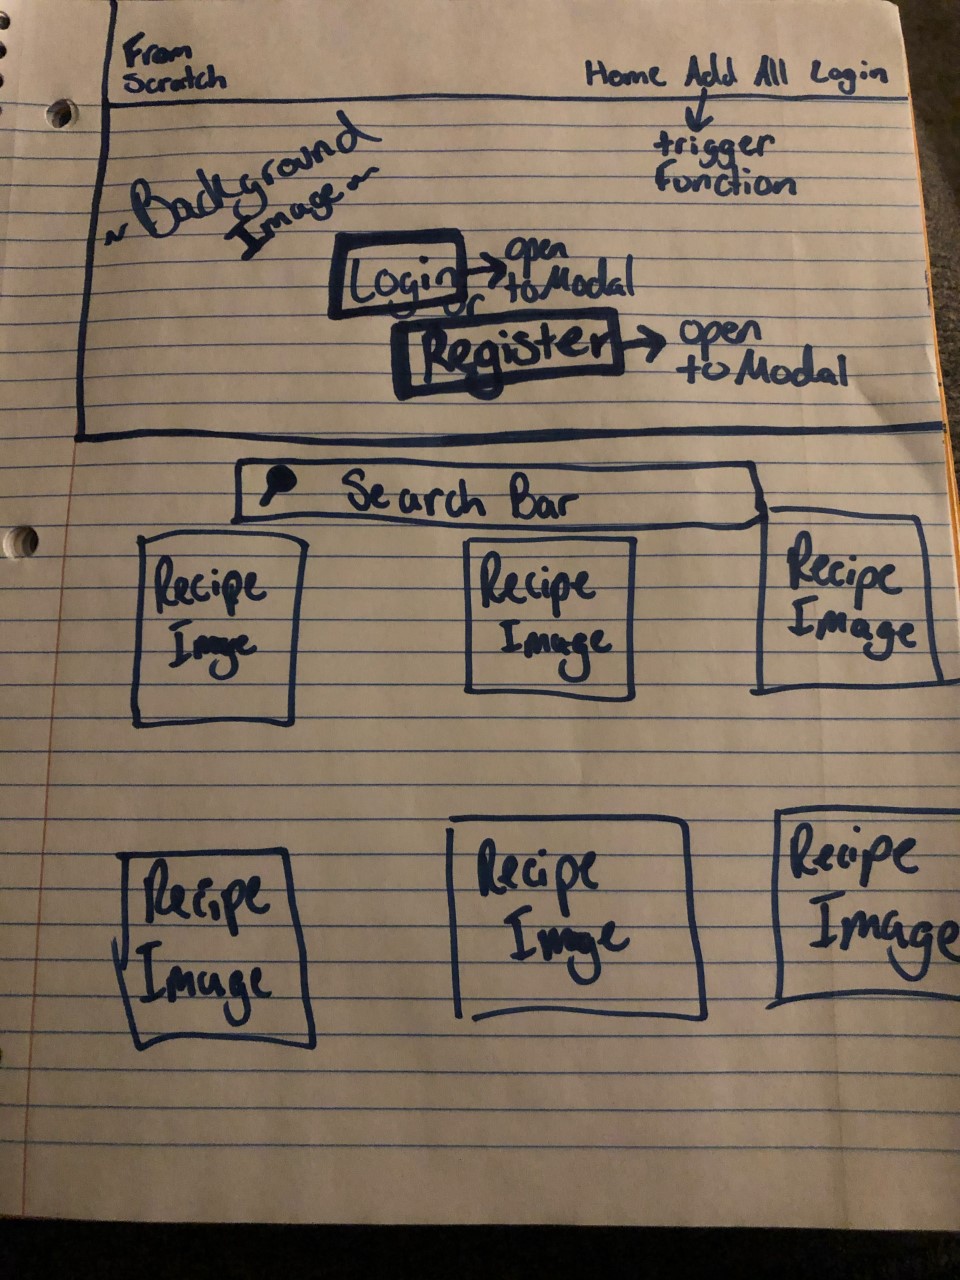 From
Scratch
Home Add All Login
trigger
function
~Background
Image~
Login
open
to Modal
or
Register
open
to Modal
Search Bar
Recipe
Image
Recipe
Image
Recipe
Image
Recipe
Image
Recipe
Image
Recipe
Image